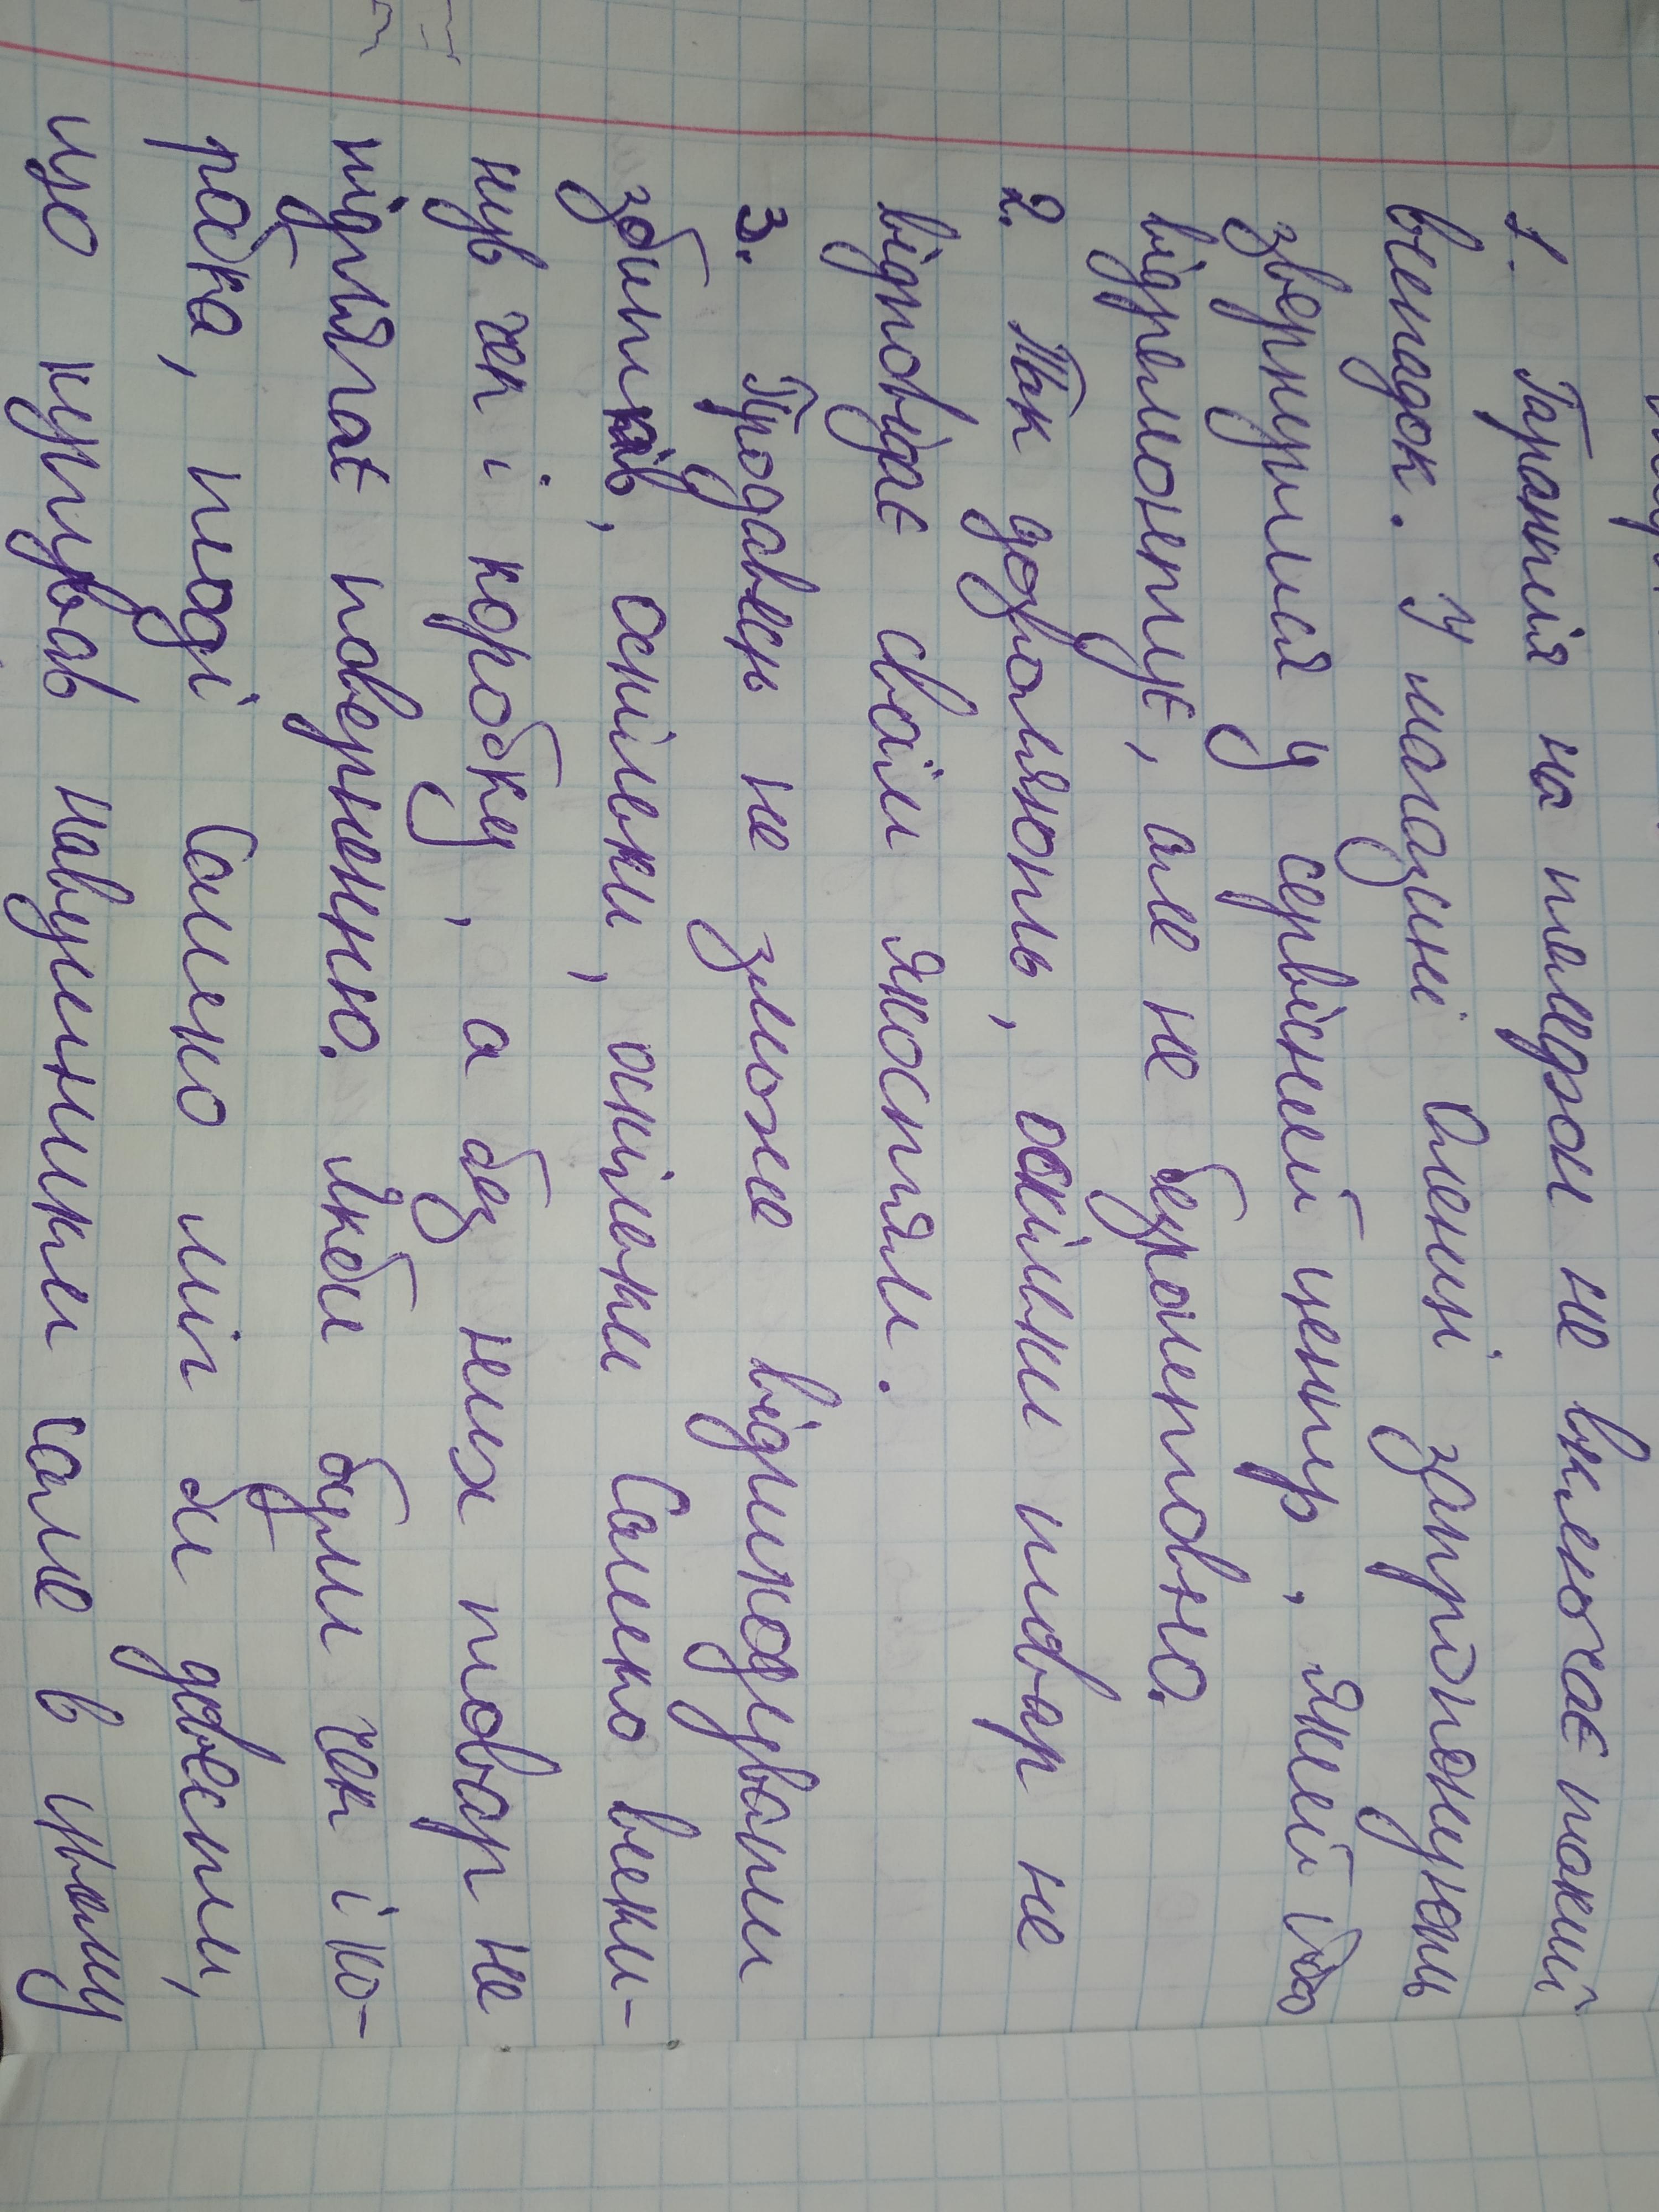 1. Гарантія на телефон не включає такий
випадок. У магазині Олені запропонують
звернутися у сервісний центр, який його
відремонтує, але не безкоштовно.
2. Так дозволяють, оскільки товар не
відповідає своїм якостям.
3. Продавець не зможе відшкодувати
збитків, оскільки, оскільки Салеко выки-
нув чек і коробку, а без них товар не
підлягає поверненню. Якби були чек і ко-
робка, тоді Салеко міг би довести,
що купував навушники саме в цьому